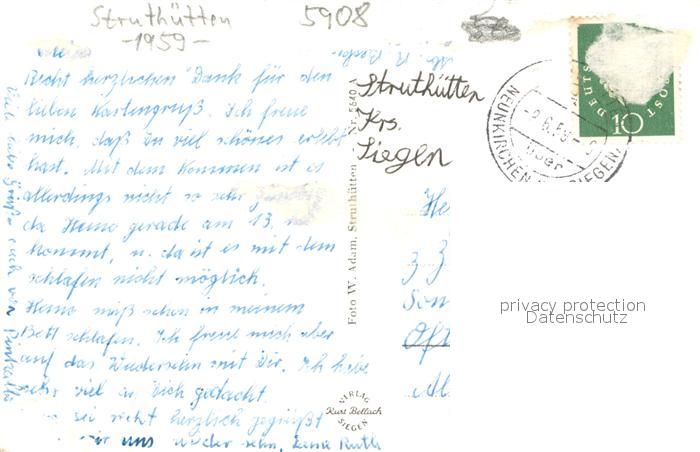 Struthütten
-1959-
5908
Recht herzlichen Dank für den
lieben Kartengruß. Ich freue
mich, daß Du viel schönes erlebt
hast. Mit dem Kommen ist es
allerdings nicht so sehr
da Heino gerade am 13.
kommt, u. da ist es mit dem
schlafen nicht möglich.
Heino muß schon in meinem
Bett schlafen. Ich freue mich aber
auf das Wiedersehn mit Dir. Ich habe
sehr viel an Dich gedacht.
sei recht herzlich gegrüßt
wir uns wieder sehn, Deine Ruth
Viele liebe Grüße auch von
Foto W. Adam, Struthütten Nr. 5640 A
Struthütten
Krs.
Siegen
VERLAG
Kurt Bellach
SIEGEN
NEUNKIRCHEN
über
SIEGEN
DEUTS POST
10
privacy protection
Datenschutz